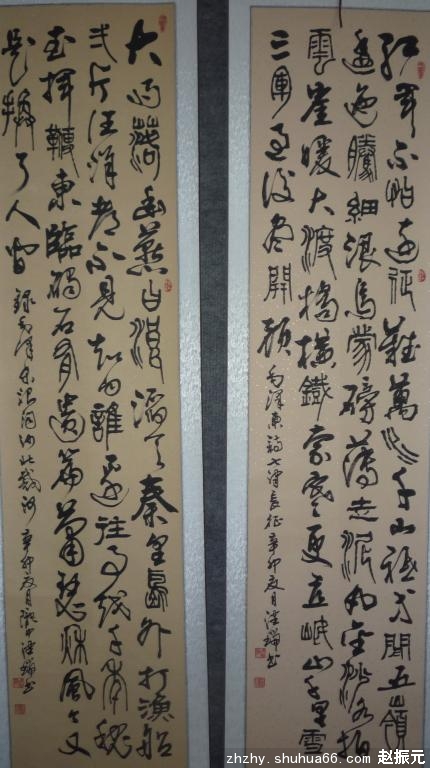 紅軍不怕遠征難萬水千山祇等閒五嶺
逶迤騰細浪烏蒙磅礴走泥丸金沙水拍
雲崖暖大渡橋橫鐵索寒更喜岷山千里雪
三軍過後盡開顏 毛澤東詩七律長征 辛卯夏月 書
大雨落幽燕白浪滔天秦皇島外打漁船
弍片汪洋都不見知向誰邊往事越千年魏
武揮鞭東臨碣石有遺篇蕭瑟秋風今又
是換了人間 錄毛澤東浪淘沙北戴河 辛卯夏月 書
zhzhy.shuhua66.com 赵振元